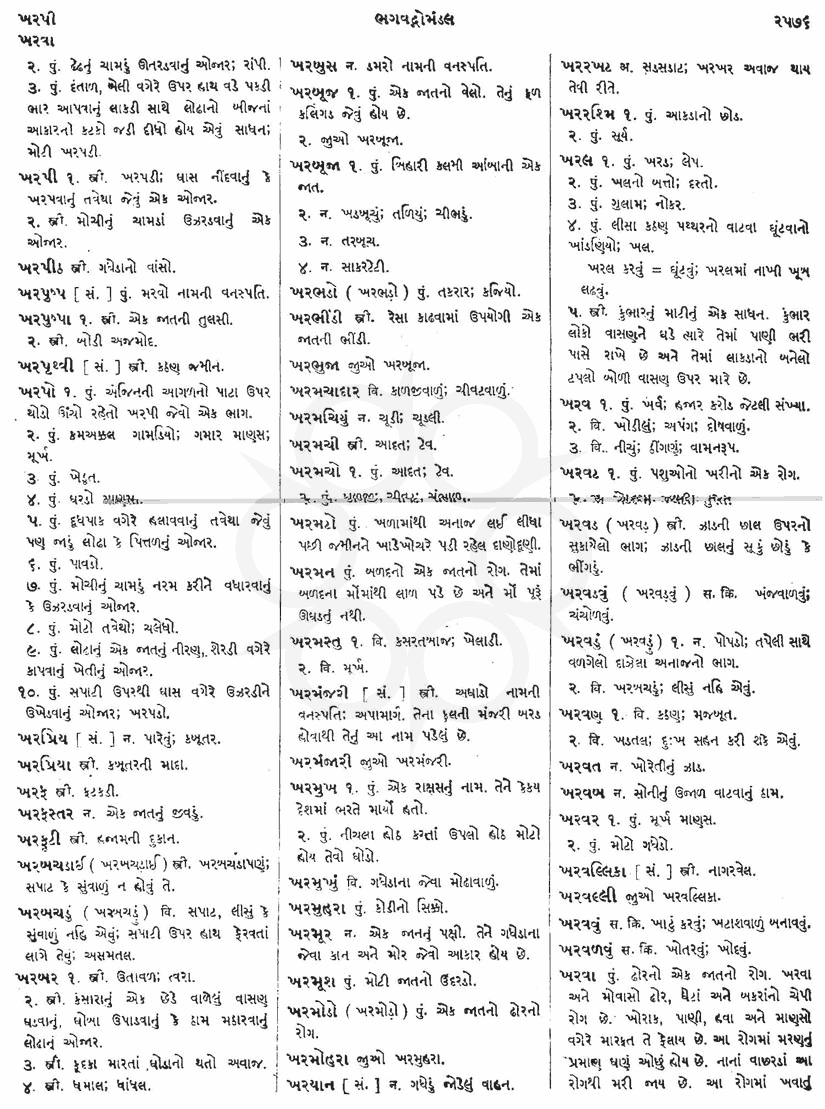 ખરપી ભગવદ્ગોમંડલ ૨૫૭૬
ખરવા
૨. પું. ઢેઢનું ચામડું ઊતરડવાનું ઓજાર; રાંપી.
૩. પું. દંતાળ, બેલી વગેરે ઉપર હાથ વડે પકડી
ભાર આપવાનું લાકડી સાથે લોઢાનો બીજનાં
આકારનો કટકો જડી દીધો હોય એવું સાધન;
મોટી ખરપડી.
ખરપી ૧. સ્ત્રી. ખરપડી; ઘાસ નીંદવાનું કે
ખરપવાનું તવેથા જેવું એક ઓજાર.
૨. સ્ત્રી. મોચીનું ચામડાં ઉઝરડવાનું એક
ઓજાર.
ખરપીઠ સ્ત્રી. ગધેડાનો વાંસો.
ખરપુષ્પ [ સં. ] પું. મરવો નામની વનસ્પતિ.
ખરપુષ્પા ૧. સ્ત્રી. એક જાતની તુલસી.
૨. સ્ત્રી. બોડી અજમોદ.
ખરપૃથ્વી [ સં. ] સ્ત્રી. કઠણ જમીન.
ખરપો ૧. પું. એંજિનની આગળનો પાટા ઉપર
થોડો ઊંચો રહેતો ખરપી જેવો એક ભાગ.
૨. પું. કમઅક્કલ ગામડિયો; ગમાર માણસ;
મૂર્ખ.
૩. પું. ખેડુત.
૪. પું. ઘરડો માણસ.
૫. પું. દૂધપાક વગેરે હલાવવાનું તવેથા જેવું
પણ જાડું લોઢા કે પિત્તળનું ઓજાર.
૬. પું. પાવડો.
૭. પું. મોચીનું ચામડું નરમ કરીને વધારવાનું
કે ઉઝરડવાનું ઓજાર.
૮. પું. મોટો તવેથો; ચલેથો.
૯. પું. લોઢાનું એક જાતનું નીરણ, શેરડી વગેરે
કાપવાનું ખેતીનું ઓજાર.
૧૦. પું. સપાટી ઉપરથી ઘાસ વગેરે ઉઝરડીને
ઉખેડવાનું ઓજાર; ખરપડો.
ખરપ્રિય [ સં. ] ન. પારેવું; કબૂતર.
ખરપ્રિયા સ્ત્રી. કબૂતરની માદા.
ખરફ સ્ત્રી. કટકડી.
ખરફસ્તર ન. એક જાતનું જીવડું.
ખરફુટી સ્ત્રી. હજામની દુકાન.
ખરબચડાઈ ( ખરબચડાઈ ) સ્ત્રી. ખરબચડાપણું;
સપાટ કે સુંવાળું ન હોવું તે.
ખરબચડું ( ખરબચડું ) વિ. સપાટ, લીસું કે
સુંવાળું નહિ એવું; સપાટી ઉપર હાથ ફેરવતાં
લાગે તેવું; અસમતલ.
ખરબર ૧. સ્ત્રી. ઉતાવળ; ત્વરા.
૨. સ્ત્રી. કંસારાનું એક છેડે વાળેલું વાસણ
ઘડવાનું, ધોબા ઉપાડવાનું કે ઠામ મઠારવાનું
લોઢાનું ઓજાર.
૩. સ્ત્રી. કૂદકા મારતાં ઘોડાનો થતો અવાજ.
૪. સ્ત્રી. ધમાલ; ધાંધલ.
ખરબુસ ન. ડમરો નામની વનસ્પતિ.
ખરબૂજ ૧. પું. એક જાતનો વેલો. તેનું ફળ
કલિંગડ જેવું હોય છે.
૨. જુઓ ખરબૂજા.
ખરબૂજા ૧. પું. બિહારી કલમી આંબાની એક
જાત.
૨. ન. ખડબૂચું; તળિયું; ચીભડું.
૩. ન. તરબૂચ.
૪. ન. સાકરટેટી.
ખરભડો ( ખરભડો ) પું. તકરાર; કજિયો.
ખરભીંડી સ્ત્રી. રેસા કાઢવામાં ઉપયોગી એક
જાતની ભીંડી.
ખરભુજા જુઓ ખરબૂજા.
ખરમચાદાર વિ. કાળજીવાળું; ચીવટવાળું.
ખરમચિયું ન. ચૂડી; ચૂડલી.
ખરમચી સ્ત્રી. આદત; ટેવ.
ખરમચો ૧. પું. આદત; ટેવ.
૨. પું. કાળજી; ચીવટ; સંભાળ.
ખરમટો પું. ખળામાંથી અનાજ લઈ લીધા
પછી જમીનને ખાડેખોચરે પડી રહેલ દાણોદૂણી.
ખરમન પું. બળદનો એક જાતનો રોગ. તેમાં
બળદના મોંમાંથી લાળ પડે છે અને મોં પૂરું
ઊઘડતું નથી.
ખરમસ્તુ ૧. વિ. કસરતબાજ; ખેલાડી.
૨. વિ. મૂર્ખ.
ખરમંજરી [ સં. ] સ્ત્રી. અઘાડો નામની
વનસ્પતિ; અપામાર્ગ. તેના ફૂલની મંજરી બરડ
હોવાથી તેનું આ નામ પડેલું છે.
ખરમંજારી જુઓ ખરમંજરી.
ખરમુખ ૧. પું. એક રાક્ષસનું નામ. તેને કેકય
દેશમાં ભરતે માર્યો હતો.
૨. પું. નીચલા હોઠ કરતાં ઉપલો હોઠ મોટો
હોય તેવો ઘોડો.
ખરમુખું વિ. ગધેડાના જેવા મોઢાવાળું.
ખરમુહરા પું. કોડીનો સિક્કો.
ખરમૂર ન. એક જાતનું પક્ષી. તેને ગધેડાના
જેવા કાન અને મોર જેવો આકાર હોય છે.
ખરમૂશ પું. મોટી જાતનો ઉંદરડો.
ખરમોડો ( ખરમોડો ) પું. એક જાતનો ઢોરનો
રોગ.
ખરમોહરા જુઓ ખરમુહરા.
ખરયાન [ સં. ] ન. ગધેડું જોડેલું વાહન.
ખરરખટ અ. સડસડાટ; ખરખર અવાજ થાય
તેવી રીતે.
ખરરશ્મિ ૧. પું. આકડાનો છોડ.
૨. પું. સૂર્ય.
ખરલ ૧. પું. ખરડ; લેપ.
૨. પું. ખલનો બત્તો; દસ્તો.
૩. પું. ગુલામ; નોકર.
૪. પું. લીસા કઠણ પથ્થરનો વાટવા ઘૂંટવાનો
ખાંડણિયો; ખલ.
ખરલ કરવું = ઘૂંટવું; ખરલમાં નાખી ખૂબ
લઢવું.
૫. સ્ત્રી. કુંભારનું માટીનું એક સાધન. કુંભાર
લોકો વાસણને ઘડે ત્યારે તેમાં પાણી ભરી
પાસે રાખે છે અને તેમાં લાકડાનો બનેલો
ટપલો બોળી વાસણ ઉપર મારે છે.
ખરવ ૧. પું. ખર્વ; હજાર કરોડ જેટલી સંખ્યા.
૨. વિ. ખોડીલું; અપંગ; દોષવાળું.
૩. વિ. નીચું; ઠીંગણું; વામનરૂપ.
ખરવટ ૧. પું. પશુઓનો ખરીનો એક રોગ.
ખરવડ ( ખરવડ ) સ્ત્રી. ઝાડની છાલ ઉપરનો
સુકાયેલો ભાગ; ઝાડની છાલનું સૂકું છોડું કે
ભીંગડું.
ખરવડવું ( ખરવડવું ) સ. ક્રિ. ખંજવાળવું;
ચંચોળવું.
ખરવડું ( ખરવડું ) ૧. ન. પોપડો; તપેલી સાથે
વળગેલો દાઝેલા અનાજનો ભાગ.
૨. વિ. ખરબચડું; લીસું નહિ એવું.
ખરવણ ૧. વિ. કઠણ; મજબૂત.
૨. વિ. ખડતલ; દુઃખ સહન કરી શકે એવું.
ખરવત ન. ખોરેતીનું ઝાડ.
ખરવબ ન. સોનીનું ઉજાળ વાટવાનું ઠામ.
ખરવર ૧. પું. મૂર્ખ માણસ.
૨. પું. મોટો ગધેડો.
ખરવલ્લિકા [ સં. ] સ્ત્રી. નાગરવેલ.
ખરવલ્લી જુઓ ખરવલ્લિકા.
ખરવવું સ. ક્રિ. ખાટું કરવું; ખટાશવાળું બનાવવું.
ખરવળવું સ. ક્રિ. ખોતરવું; ખોદવું.
ખરવા પું. ઢોરનો એક જાતનો રોગ. ખરવા
અને મોવાસો ઢોર, ઘેટાં અને બકરાંનો ચેપી
રોગ છે. ખોરાક, પાણી, હવા અને માણસો
વગેરે મારફત તે ફેલાય છે. આ રોગમાં મરણનું
પ્રમાણ ઘણું ઓછું હોય છે. નાનાં વાછરડાં આ
રોગથી મરી જાય છે. આ રોગમાં ખવાતું